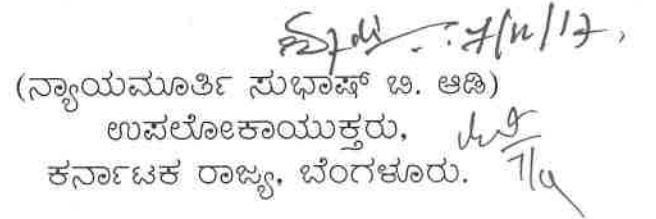 7/11/17,
(ನ್ಯಾಯಮೂರ್ತಿ ಸುಭಾಷ್ ಬಿ. ಆಡಿ)
ಉಪಲೋಕಾಯುಕ್ತರು,
ಕರ್ನಾಟಕ ರಾಜ್ಯ, ಬೆಂಗಳೂರು.
7/11